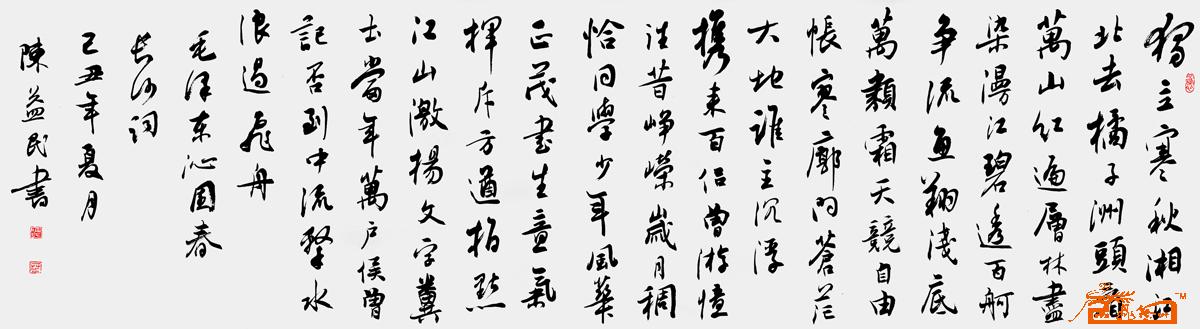 獨立寒秋湘江
北去橘子洲頭看
萬山红遍層林盡
染漫江碧透百舸
争流鱼翔淺底
萬類霜天競自由
悵寥廓问蒼茫
大地誰主沉浮
携来百侣曾游憶
往昔峥嵘歲月稠
恰同學少年風華
正茂書生意氣
揮斥方遒指點
江山激揚文字糞
土當年萬户侯曾
記否到中流擊水
浪遏飛舟
毛泽东沁園春
长沙詞
己丑年夏月
陳益民書